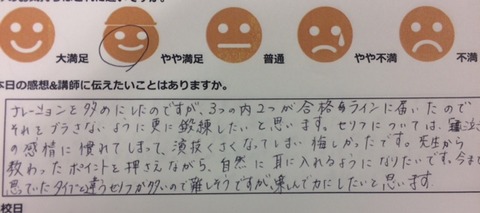 大満足 やや満足 普通 やや不満 不満
本日の感想&講師に伝えたいことはありますか。
ナレーションを多めにしたのですが、3つの内2つが合格ラインに届いたので
それをブラさないように更に鍛練したいと思います。セリフについては、
の感情に慣れてしまって、演技くさくなってしまい悔しかったです。先生から
教わったポイントを押さえながら、自然に耳に入れるようになりたいです。今まで
思っていたタイプと違うセリフが多いので難しそうですが、楽しんで力にしたいと思います。
校日